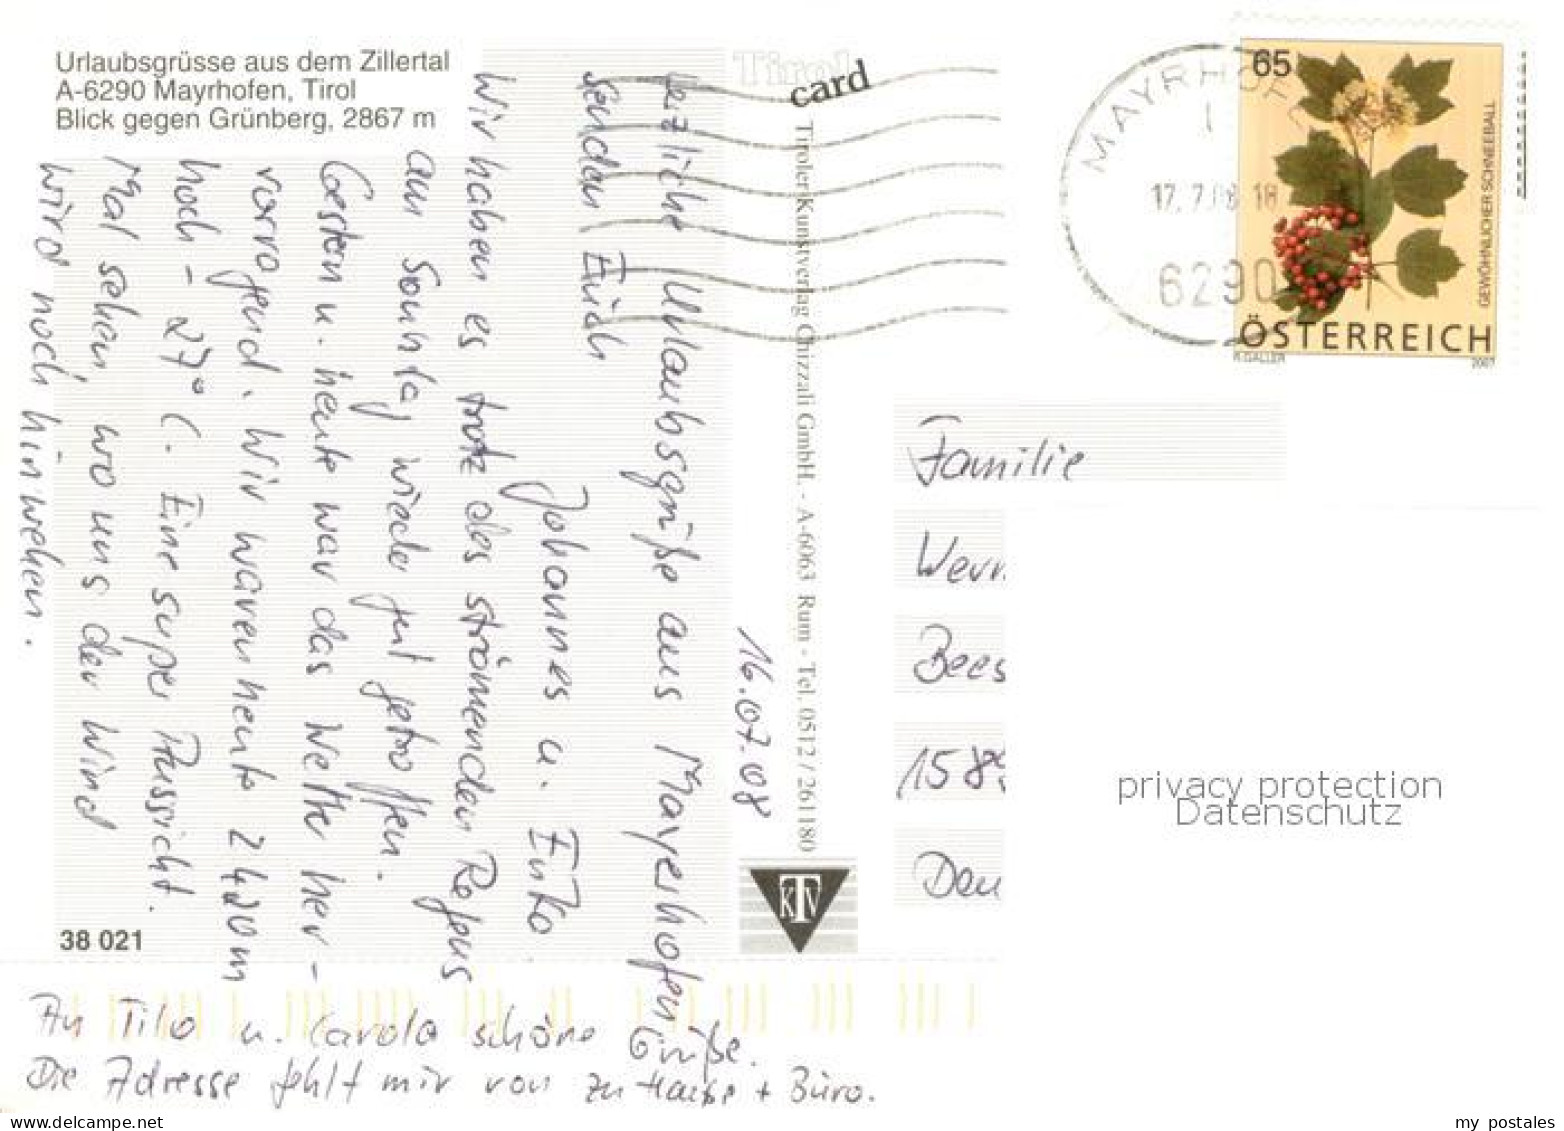 Urlaubsgrüsse aus dem Zillertal
A-6290 Mayrhofen, Tirol
Blick gegen Grünberg, 2867 m
Tirol
card
MAYRHOF
1
17.7.08 18
6290
65
GEWÖHNLICHER SCHNEEBALL
ÖSTERREICH
R.GALLER
2007
16.07.08
Herzliche Urlaubsgrüße aus Mayerhofen
senden Euch
Johannes u. Enko.
Wir haben es trotz des strömenden Regens
am Sonntag wieder gut getroffen.
Gestern u. heute war das Wetter her-
vorragend. Wir waren heute 2420m
hoch - 27° C. Eine super Aussicht.
Mal sehen, wo uns der Wind
wird noch hinwehen.
An Tilo u. Carola schöne Grüße.
Die Adresse fehlt mir von zu Hause + Büro.
Tiroler Kunstverlag Chizzali GmbH. - A-6063 Rum - Tel. 0512 / 261180
KTV
38 021
Familie
Wern
Bees
1589
Deu
privacy protection
Datenschutz
www.delcampe.net
my_postales